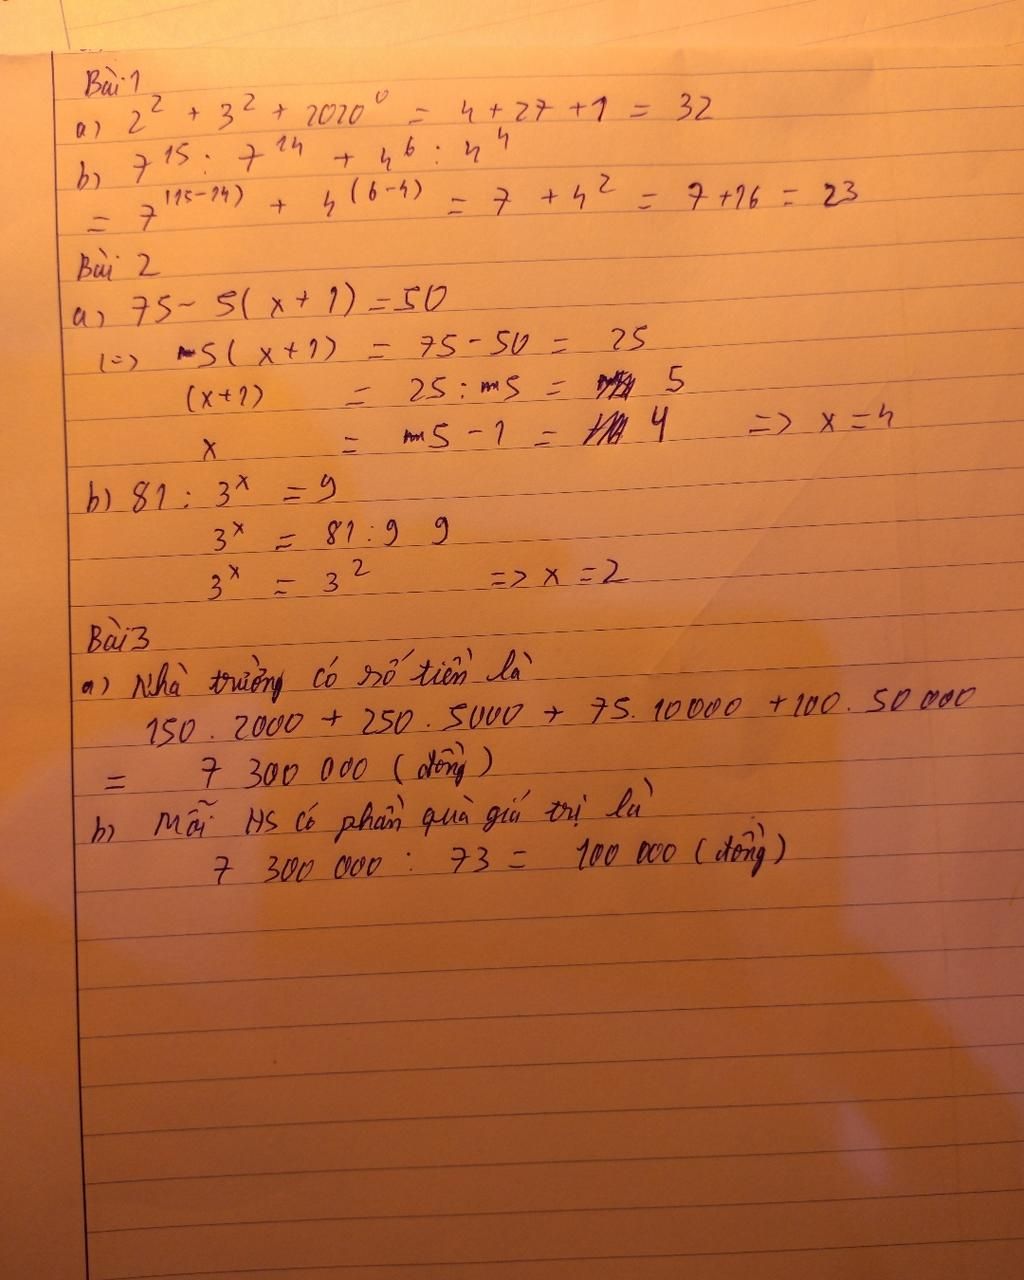 Bài 1
a) 2² + 3² + 2020⁰ = 4 + 27 + 1 = 32
b) 7¹⁵ : 7¹⁴ + 4⁶ : 4⁴
= 7⁽¹⁵⁻¹⁴⁾ + 4⁽⁶⁻⁴⁾ = 7 + 4² = 7 + 16 = 23
Bài 2
a) 75 - 5(x + 1) = 50
(=) 5(x + 1) = 75 - 50 = 25
(x + 1) = 25 : 5 = 5
x = 5 - 1 = 4 => x = 4
b) 81 : 3ˣ = 9
3ˣ = 81 : 9 9
3ˣ = 3² => x = 2
Bài 3
a) Nhà trường có số tiền là
150 . 2000 + 250 . 5000 + 75 . 10000 + 100 . 50 000
= 7 300 000 (đồng)
b) Mỗi HS có phần quà giá trị là
7 300 000 : 73 = 100 000 (đồng)